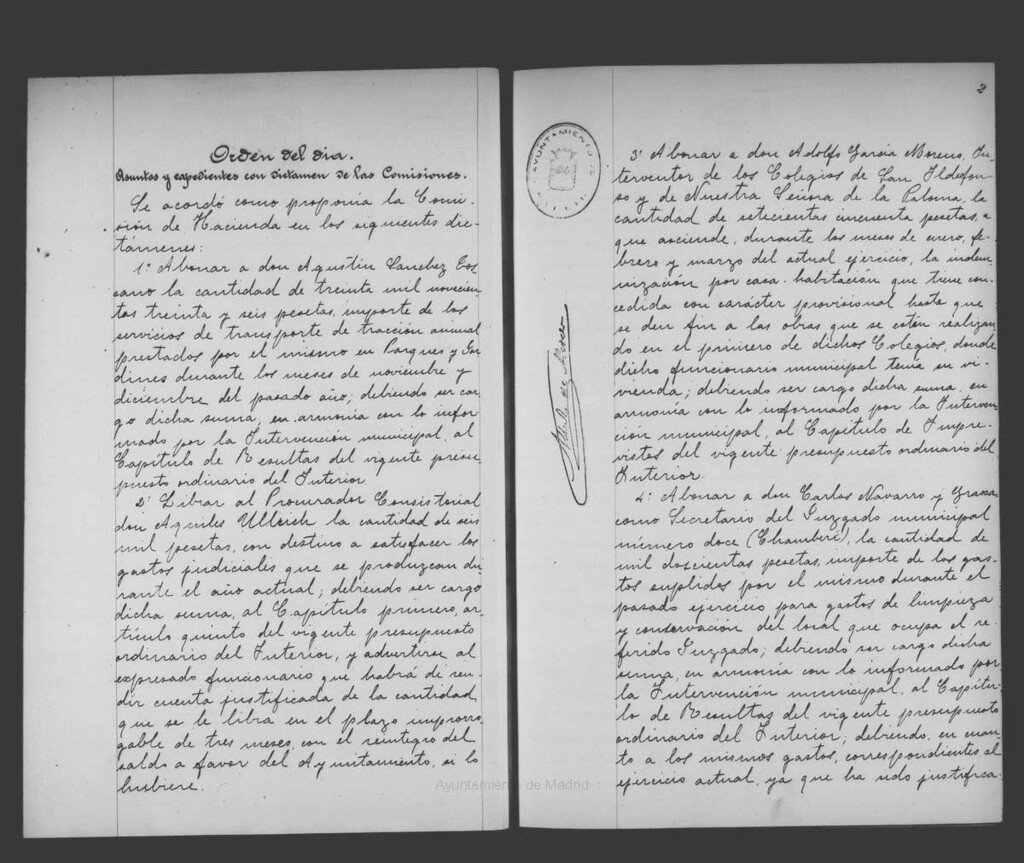 Orden del dia.
Asuntos y expedientes con dictamen de las Comisiones.
Se acordó como proponia la Comi-
sión de Hacienda en los siguientes dic-
támenes:
1º Abonar a don Agustín Sanchez Tos
cano la cantidad de treinta mil novecien-
tas treinta y seis pesetas, importe de los
servicios de transporte de tracción animal
prestados por el mismo en Parques y Jar
dines durante los meses de noviembre y
diciembre del pasado año; debiendo ser car-
go dicha suma, en armonia con lo infor-
mado por la Intervención municipal, al
Capítulo de Resultas del vigente presu-
puesto ordinario del Interior.
2º Librar al Procurador Consistorial
don Aquiles Ullrich la cantidad de seis
mil pesetas, con destino a satisfacer los
gastos judiciales que se produzcan du-
rante el año actual; debiendo ser cargo
dicha suma, al Capítulo primero, ar-
tículo quinto del vigente presupuesto
ordinario del Interior, y advertirse al
expresado funcionario que habrá de ren-
dir cuenta justificada de la cantidad
que se le libra en el plazo improrro-
gable de tres meses, con el reintegro del
saldo a favor del Ayuntamiento, si lo
hubiere.
2
AYUNTAMIENTO DE
3º Abonar a don Adolfo Garcia Moreno, In-
terventor de los Colegios de San Ildefon-
so y de Nuestra Señora de la Paloma, la
cantidad de setecientas cincuenta pesetas, a
que asciende, durante los meses de enero, fe-
brero y marzo del actual ejercicio, la indem-
nización por casa-habitación que tiene con-
cedida con carácter provisional hasta que
se den fin a las obras que se están realizan-
do en el primero de dichos Colegios, donde
dicho funcionario municipal tenía su vi-
vienda; debiendo ser cargo dicha suma, en
armonia con lo informado por la Interven-
ción municipal, al Capítulo de Impre-
vistos del vigente presupuesto ordinario del
Interior.
4º Abonar a don Carlos Navarro y
como Secretario del Juzgado municipal
número doce (Chamberí), la cantidad de
mil doscientas pesetas, importe de los gas-
tos suplidos por el mismo durante el
pasado ejercicio para gastos de limpieza
y conservación del local que ocupa el re-
ferido Juzgado; debiendo ser cargo dicha
suma, en armonia con lo informado por
la Intervención municipal, al Capítu-
lo de Resultas del vigente presupuesto
ordinario del Interior; debiendo, en cuan-
to a los mismos gastos, correspondientes al
ejercicio actual, ya que ha sido justifica-
Ayuntamiento de Madrid